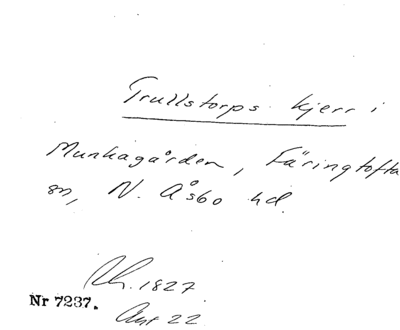 Trullstorps kjerr i
Munkagården, Färingtofta
sn, N. Åsbo hd.
Rh. 1827
Nr 7237.
Akt 22